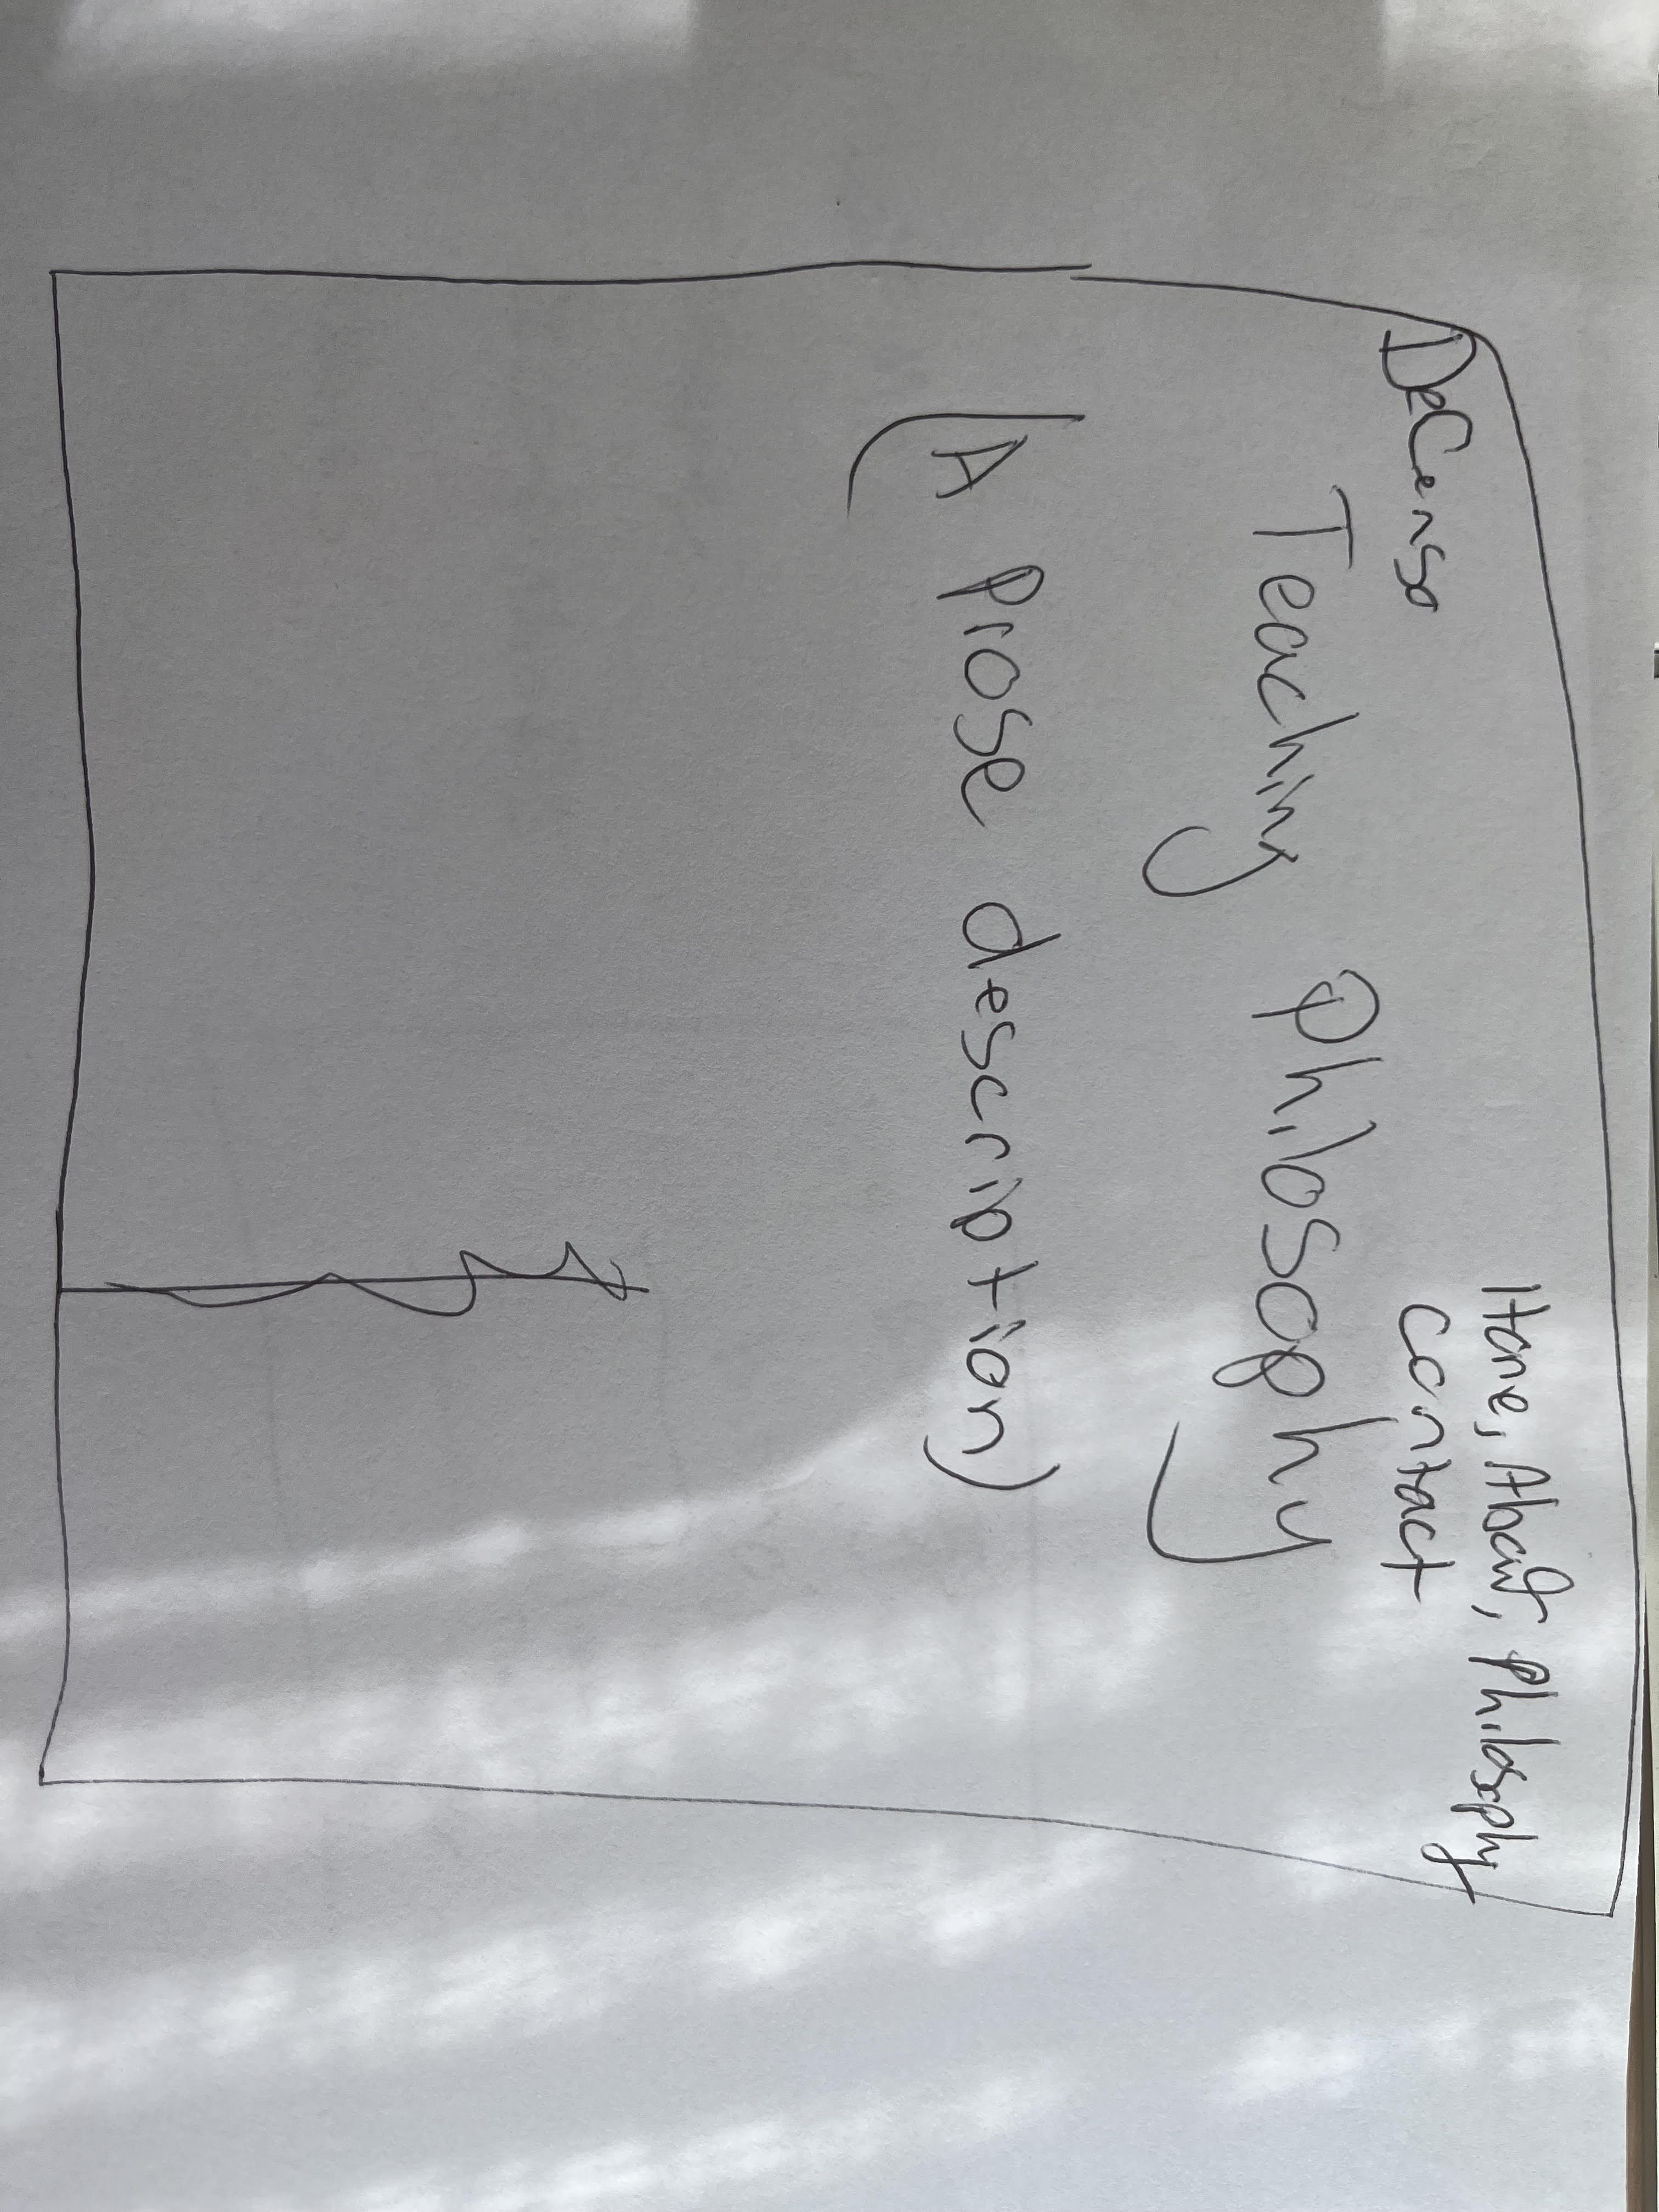 DeCenso
Home, About, Philosophy
Contact
Teaching Philosophy
(A prose description)